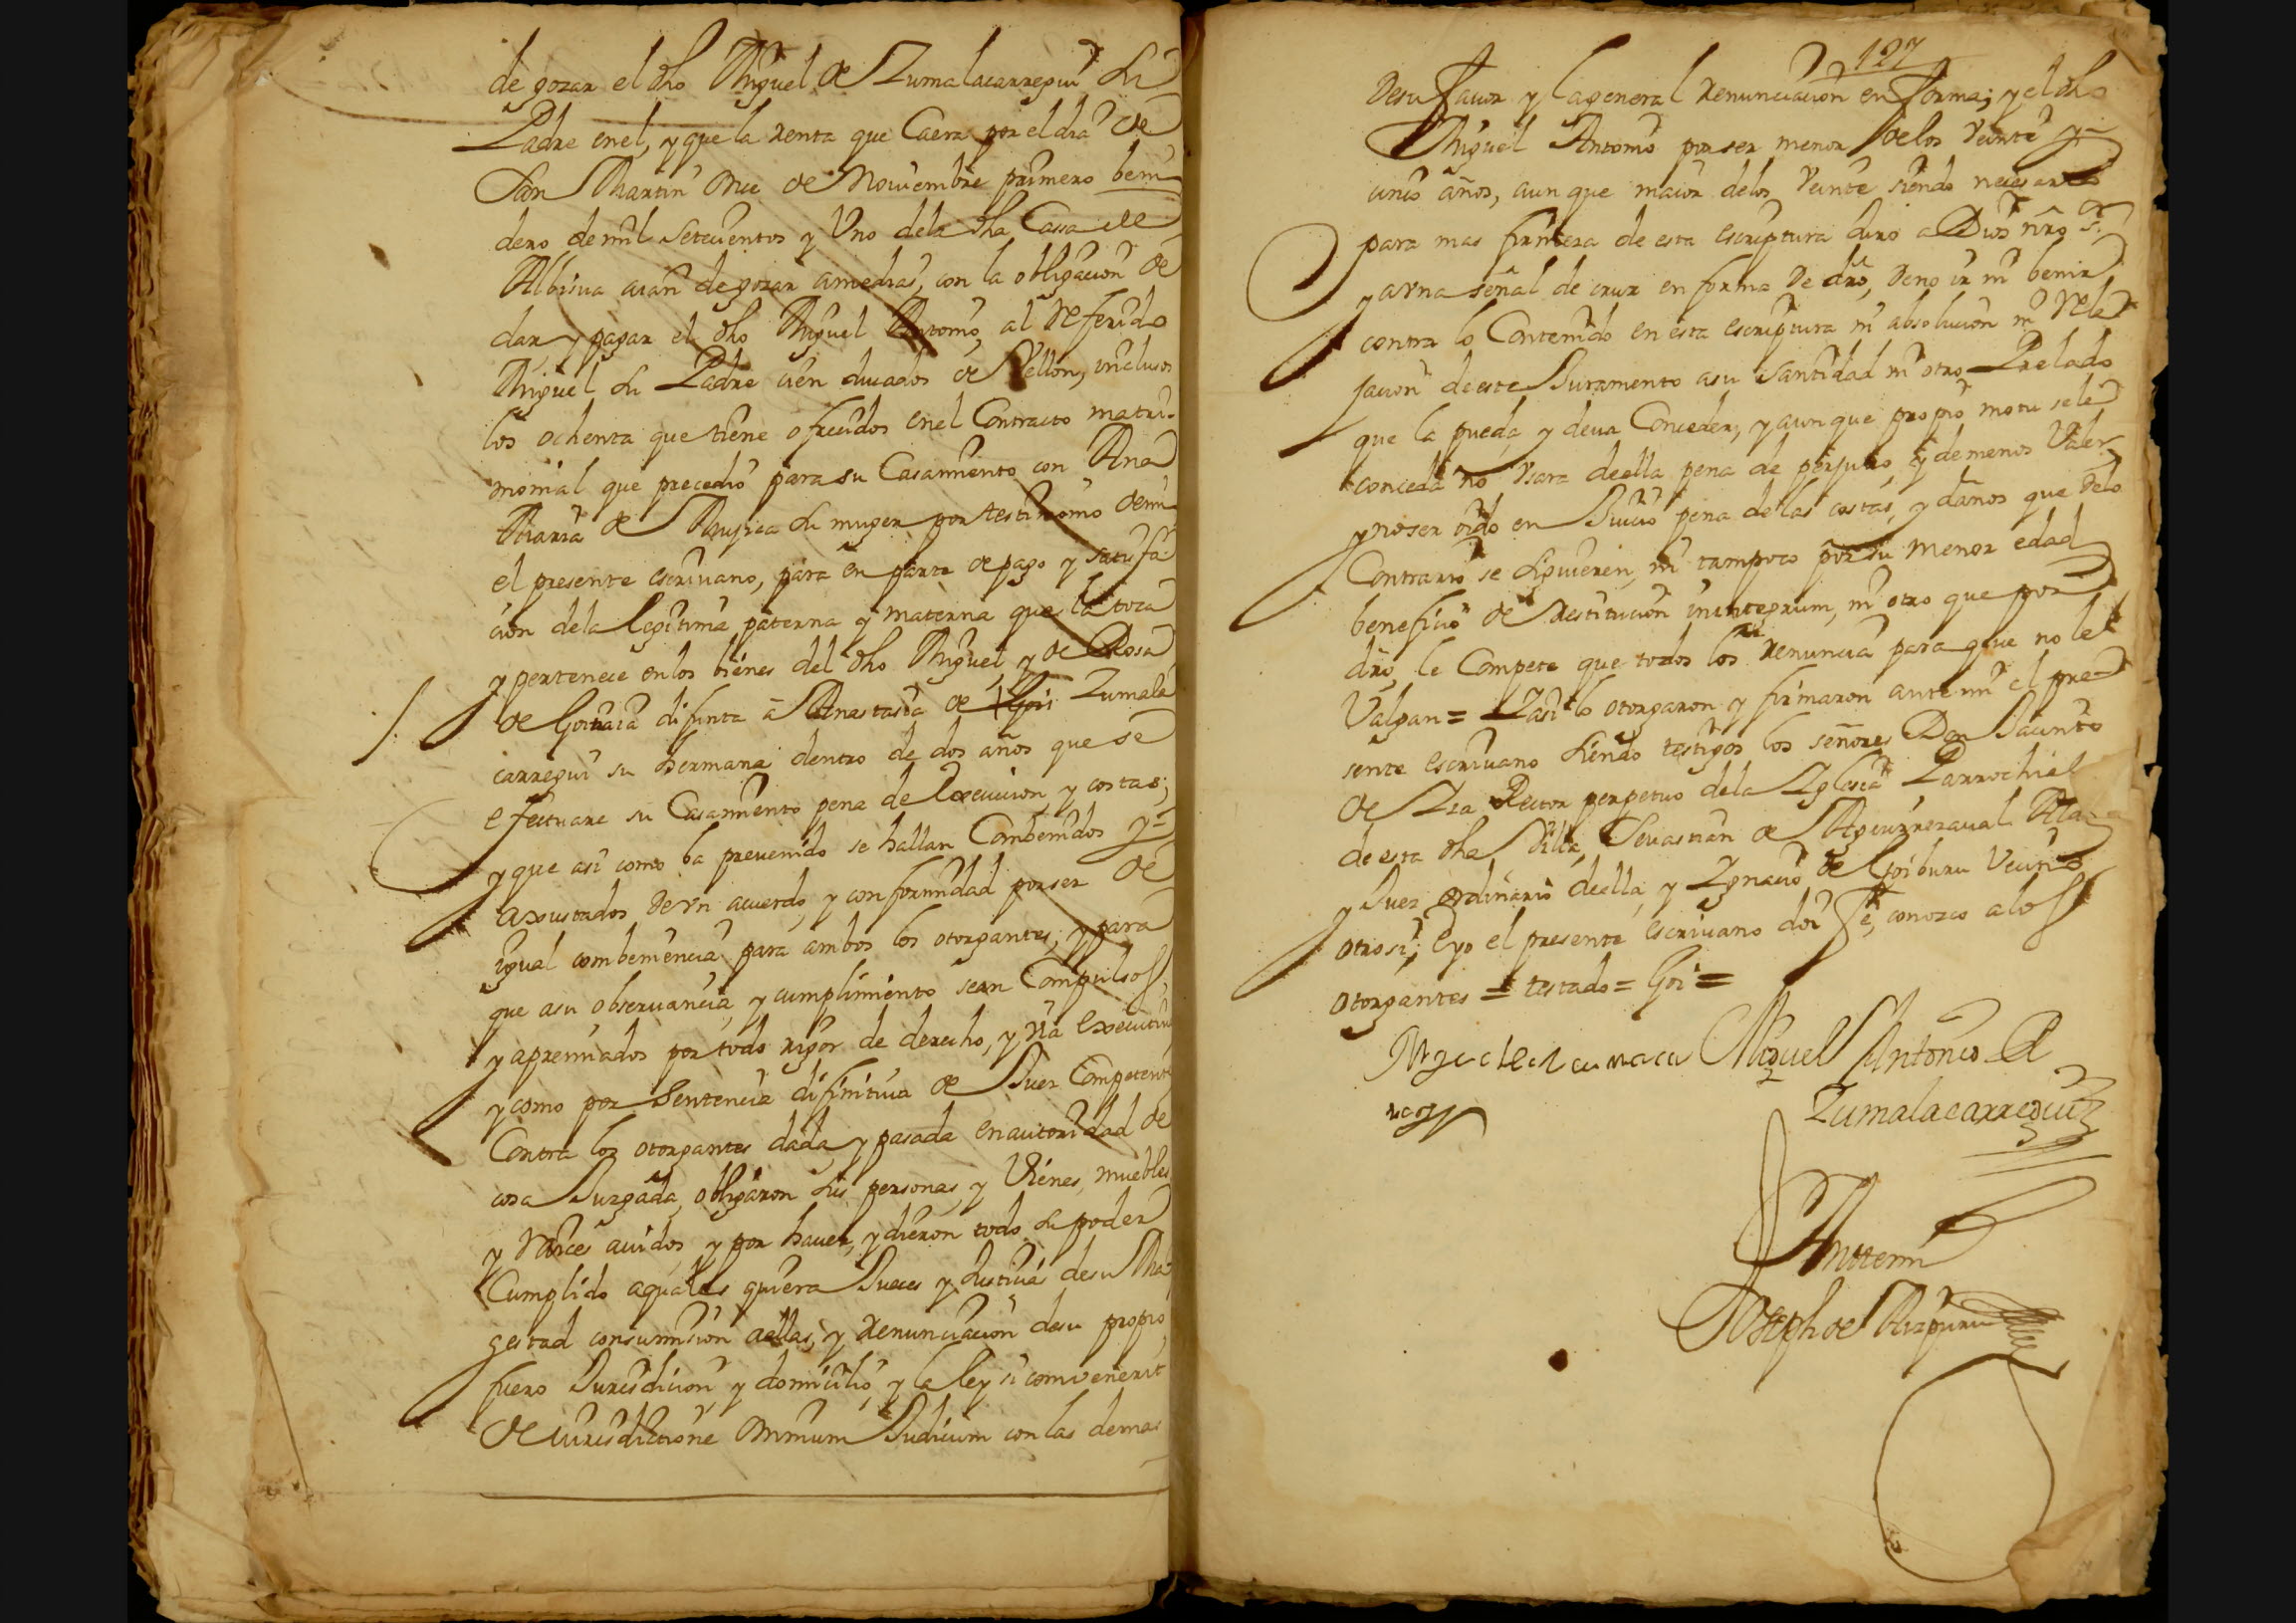 de gozar el dho Miguel de Zumalacarregui su
Padre en el, y que la renta que Caera por el dia de
San Martin onze de Nouiembre primero beni
dero de mil Setecientos y Uno de la dha Cassa de
Albisua aian de gozar a medias, con la obligacion de
dar y pagar el dho Miguel Antonio, al referido
Miguel su Padre cien ducados de Vellon, inclusos
los ochenta que tiene ofrecidos en el Contracto matri-
monial que precedio para su Casamiento con Ana
Maria de Mujica su muger por testimonio de mi
el presente escriuano, para en parte de pago y satisfa-
cion de la legitima paterna y materna que la toca
y pertenece en los bienes del dho Miguel, y de Rosa
de Goitiaia difunta â Anastasia de Goi Zumala
carregui su hermana dentro de dos años que se
efectuare su Casamiento pena de execucion y costas;
y que asi como ba preuenido se hallan Combenidos y
axustados de vn acuerdo, y conformidad por ser de
igual combeniencia para ambos los otorgantes; y para
que a su obseruancia, y cumplimiento sean Compulsos,
y apremiados por todo rigor de derecho, y via executiu
y como por Sentencia difinitiua de Juez Competente
Contra los otorgantes dada, y pasada en autoridad de
cosa Juzgada, obligaron sus personas, y Vienes, muebles
y raices auidos, y por hauer, y dieron todo su poder
Cumplido a quales quiera Jueces y Justicias de su Ma-
gestad con sumision a ellas, y renunciacion de su propio
fuero Jurisdicion, y domicilio, y la ley si conuenerit
de iurisdictione omnium Judicum con las demas
127
de su fauor y la general renunciacion en forma; y el dho
Miguel Antonio por ser menor de los Veinte y
cinco años, aun que maior de los Veinte siendo necesario
para mas firmeza de esta escriptura Juro a Dios nro Sr.
y a vna señal de cruz en forma de dro, de no ir ni benir
contra lo Contenido en esta escriptura ni absolucion ni rela
jacion de este Juramento a su Santidad ni otro Prelado
que la pueda, y deua Conceder, y aun que propio motu se le
conceda no vsara de ella pena de perjuro, y de menos Valer,
y no ser oido en Juicio pena de las costas, y daños que de lo
Contrario se siguieren, ni tampoco por su menor edad
beneficio de restitucion in integrum, ni otro que por
dro, le Compete que todos los renuncia para que no le
Valgan = Y asi lo otorgaron y firmaron ante mi el pre-
sente escriuano siendo testigos los señores Don Jacinto
de Rector perpetuo de la Yglesia Parrochial
de esta dha Villa, Sevastian de Aguirrezaual Alc
y Juez ordinario de ella, y Ygnacio de Goiburu Vecino
otrosi; e yo el presente escriuano doi fe, conozco a los
otorgantes = testado = Goi =
Miguel Antonio de
Zumalacarregui
Ante mi
Joseph de Aizpuru